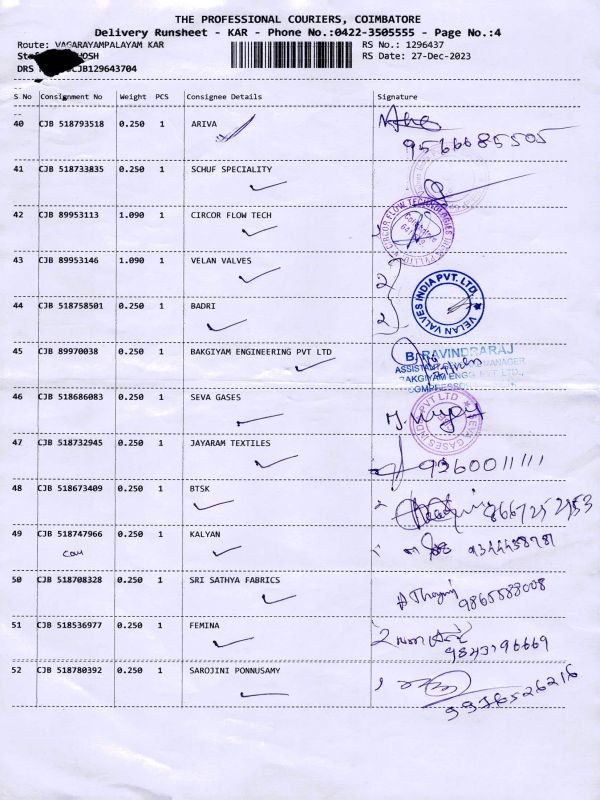 THE PROFESSIONAL COURIERS, COIMBATORE
Delivery Runsheet - KAR - Phone No.:0422-3505555 - Page No.:4
Route: VAGARAYAMPALAYAM KAR RS No.: 1296437
RS Date: 27-Dec-2023
DRS CJB129643704
S No Consignment No Weight PCS Consignee Details Signature
40 CJB 518793518 0.250 1 ARIVA
41 CJB 518733835 0.250 1 SCHUF SPECIALITY
42 CJB 89953113 1.090 1 CIRCOR FLOW TECH
43 CJB 89953146 1.090 1 VELAN VALVES
VELAN VALVES INDIA PVT. LTD.
44 CJB 518758501 0.250 1 BADRI
45 CJB 89970038 0.250 1 BAKGIYAM ENGINEERING PVT LTD
B. RAVINDRARAJ
46 CJB 518686083 0.250 1 SEVA GASES
47 CJB 518732945 0.250 1 JAYARAM TEXTILES
9360011111
48 CJB 518673409 0.250 1 BTSK
8667252953
49 CJB 518747966 0.250 1 KALYAN
50 CJB 518708328 0.250 1 SRI SATHYA FABRICS
9865588008
51 CJB 518536977 0.250 1 FEMINA
52 CJB 518780392 0.250 1 SAROJINI PONNUSAMY